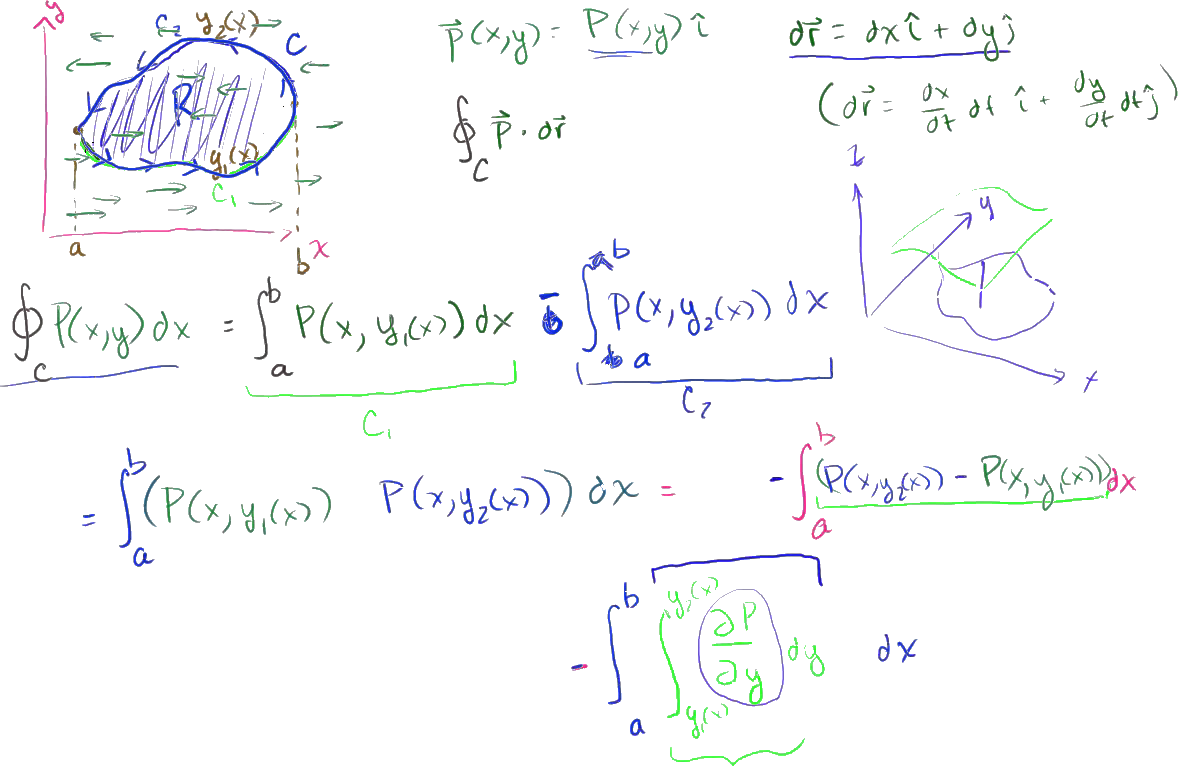 y
C₂ y₂(x)
C
R
y₁(x)
C₁
a
b
x
P⃗(x,y) = P(x,y) î
dr⃗ = dx î + dy ĵ
(dr⃗ = dx/dt dt î + dy/dt dt ĵ)
∮_C P⃗ · dr⃗
z
y
x
∮_C P(x,y) dx = ∫_a^b P(x, y₁(x)) dx - ∫_a^b P(x, y₂(x)) dx
C₁
C₂
= ∫_a^b (P(x, y₁(x)) P(x, y₂(x))) dx = - ∫_a^b (P(x, y₂(x)) - P(x, y₁(x))) dx
- ∫_a^b ∫_{y₁(x)}^{y₂(x)} ∂P/∂y dy dx